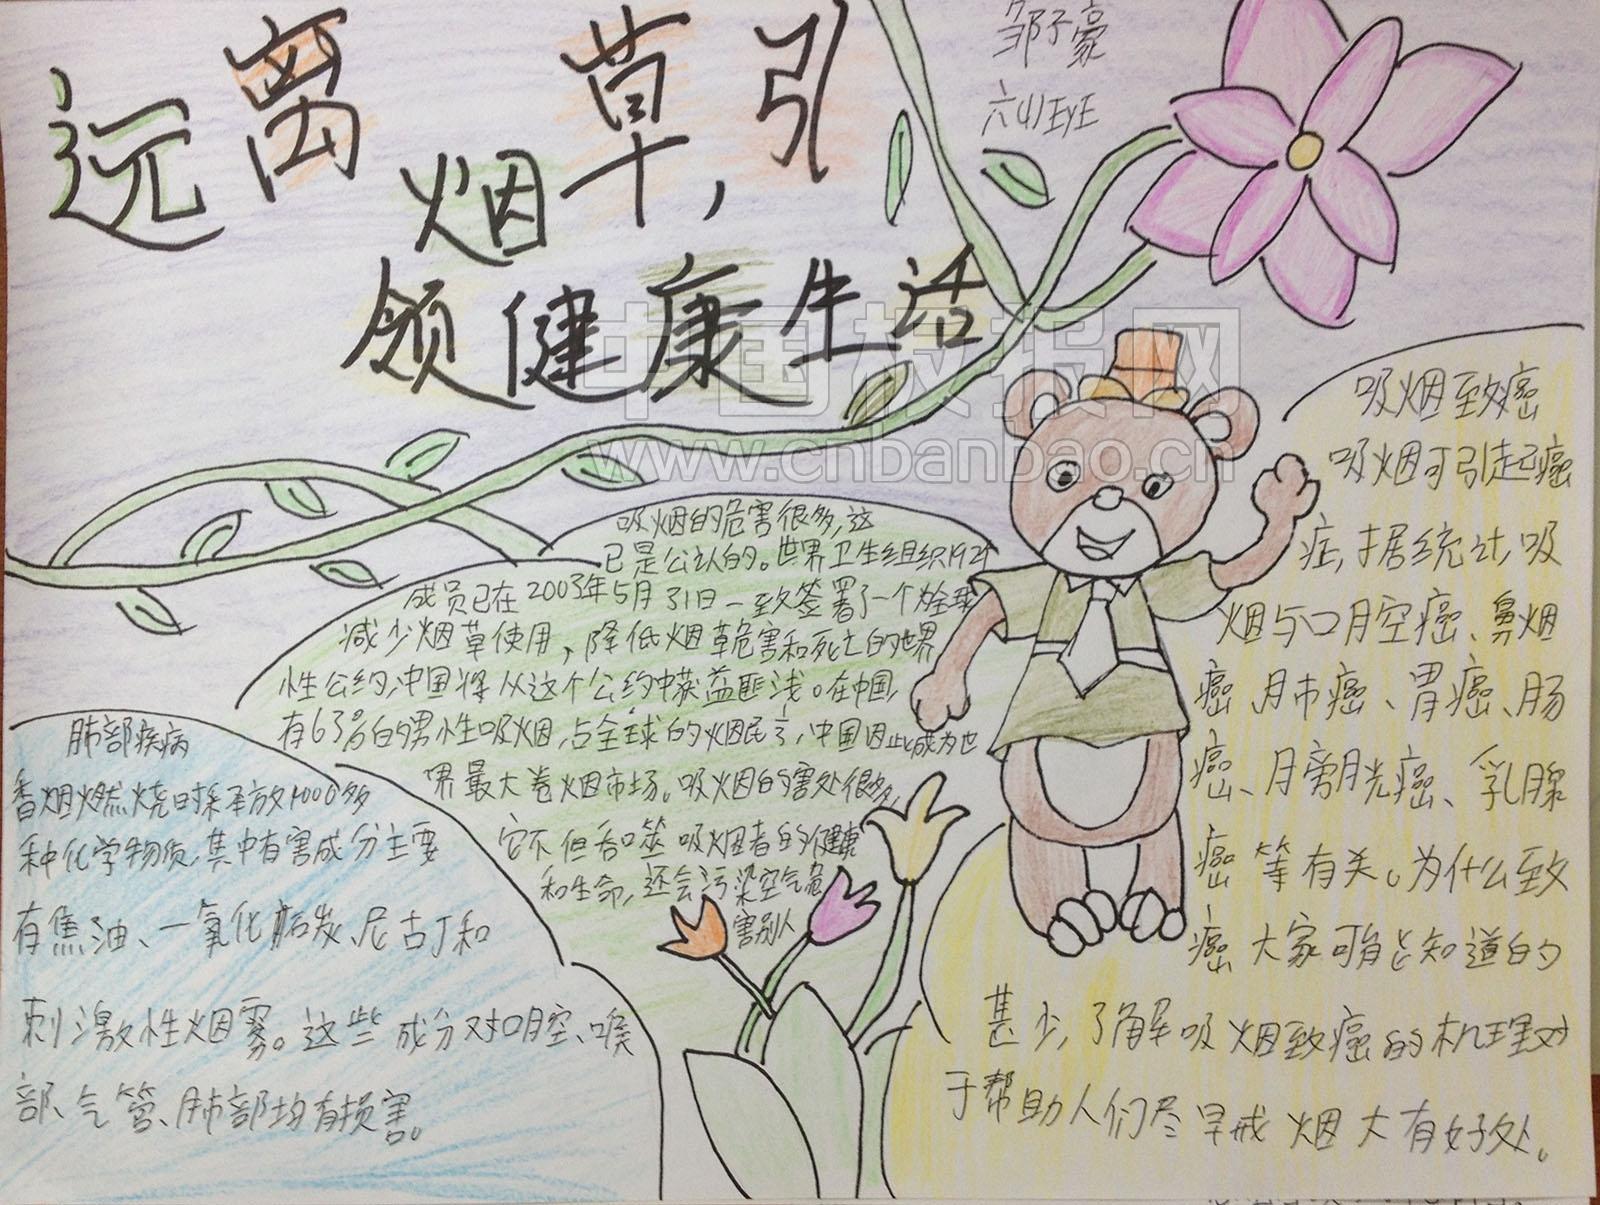 远离烟草,引
领健康生活
邹子豪
中国板报网
www.cnbanbao.cn
吸烟的危害很多,这
已是公认的。世界卫生组织192个
成员已在2003年5月31日一致签署了一个全球
减少烟草使用,降低烟草危害和死亡的世界
性公约,中国将从这个公约中获益匪浅。在中国,
有63%的男性吸烟,占全球的烟民了,中国因此成为世
界最大卷烟市场。吸烟的害处很多,
它不但吞噬吸烟者的健康
和生命,还会污染空气危
害别人
肺部疾病
香烟燃烧时释放1000多
种化学物质,其中有害成分主要
有焦油、一氧化碳、尼古丁和
刺激性烟雾。这些成分对口腔、喉
部、气管、肺部均有损害。
吸烟致癌
吸烟可引起癌
症,据统计,吸
烟与口腔癌、鼻烟
癌、肺癌、胃癌、肠
癌、膀胱癌、乳腺
癌等有关。为什么致
癌大家可能知道的
甚少,了解吸烟致癌的机理对
于帮助人们尽早戒烟大有好处。